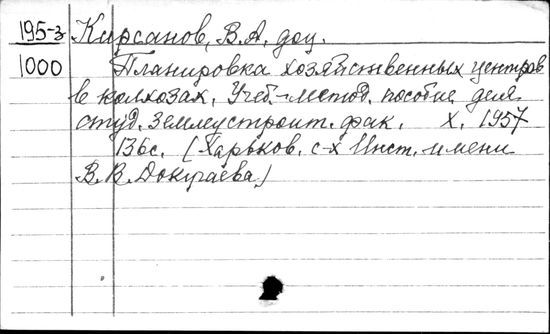 195-з Кирсанов, В.А. доц.
1000 Планировка хозяйственных центров
в колхозах. Учеб.-метод. пособие для
студ. землеустроит. фак. Х. 1957
136с. (Харьков. с-х Инст. имени
В.В. Докучаева)